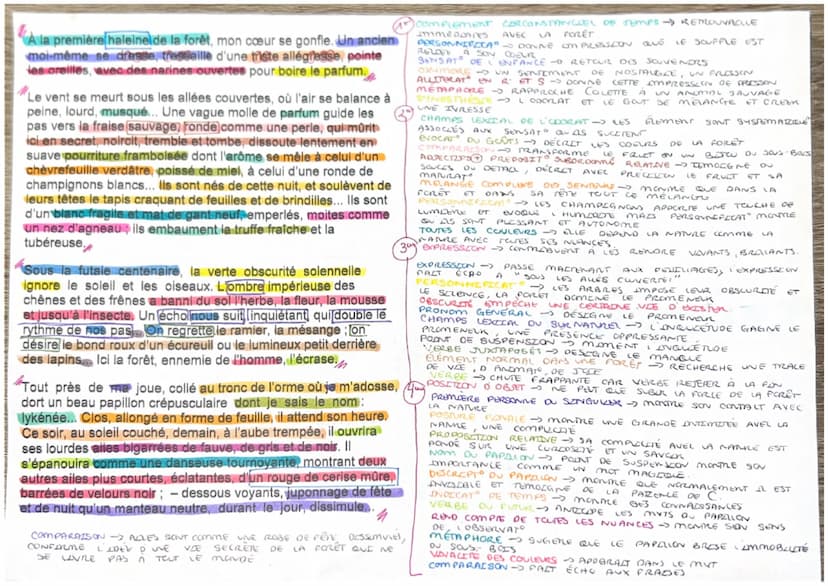 À la première haleine de la forêt, mon cœur se gonfle. Un ancien
moi-même se dresse, tressaille d'une triste allégresse, pointe
les oreilles, avec des narines ouvertes pour boire le parfum.
Le vent se meurt sous les allées couvertes, où l'air se balance à
peine, lourd, musqué... Une vague molle de parfum guide les
pas vers la fraise sauvage, ronde comme une perle, qui mûrit
ici en secret, noircit, tremble et tombe, dissoute lentement en
suave pourriture framboisée dont l'arôme se mêle à celui d'un
chèvrefeuille verdâtre, poissé de miel, à celui d'une ronde de
champignons blancs... Ils sont nés de cette nuit, et soulèvent de
leurs têtes le tapis craquant de feuilles et de brindilles... Ils sont
d'un blanc fragile et mat de gant neuf, emperlés, moites comme
un nez d'agneau ; ils embaument la truffe fraîche et la
tubéreuse.
Sous la futaie centenaire, la verte obscurité solennelle
ignore le soleil et les oiseaux. L'ombre impérieuse des
chênes et des frênes a banni du sol l'herbe, la fleur, la mousse
et jusqu'à l'insecte. Un écho nous suit, inquiétant, qui double le
rythme de nos pas... On regrette le ramier, la mésange ; on
désire le bond roux d'un écureuil ou le lumineux petit derrière
des lapins... Ici la forêt, ennemie de l'homme, l'écrase.
Tout près de ma joue, collé au tronc de l'orme où je m'adosse,
dort un beau papillon crépusculaire dont je sais le nom :
lykénée... Clos, allongé en forme de feuille, il attend son heure.
Ce soir, au soleil couché, demain, à l'aube trempée, il ouvrira
ses lourdes ailes bigarrées de fauve, de gris et de noir. Il
s'épanouira comme une danseuse tournoyante, montrant deux
autres ailes plus courtes, éclatantes, d'un rouge de cerise mûre,
barrées de velours noir ; – dessous voyants, juponnage de fête
et de nuit qu'un manteau neutre, durant le jour, dissimule...
COMPARAISON → AILES SONT COMME UNE ROBE DE FÊTE DISSIMULÉE,
CONFIRME L'IDÉE D'UNE VIE SECRÈTE DE LA FORÊT QUI NE
SE LIVRE PAS À TOUT LE MONDE
1er
COMPLÉMENT CIRCONSTANCIEL DE TEMPS → RETROUVAILLE
IMMÉDIATE AVEC LA FORÊT
PERSONNIFICAT° → DONNE IMPRESSION QUE LE SOUFFLE EST
SON COEUR
SENSAT° DE L'ENFANCE → RETOUR DES SOUVENIRS
OXYMORE → UN SENTIMENT DE NOSTALGIE, UN FRISSON
ALLITÉRAT° EN R ET S → DONNE CETTE IMPRESSION DE FRISSON
MÉTAPHORE → RAPPROCHE COLETTE À UN ANIMAL SAUVAGE
SYNESTHÉSIE → L'ODORAT ET LE GOÛT SE MÉLANGE ET CRÉER
UNE IVRESSE
2e
CHAMPS LEXICAL DE L'ODORAT → LES ÉLÉMENT SONT
ASSOCIÉS AUX SENSAT° QU'ILS SUSCITENT
ÉVOCAT° DU GOÛTS → DÉCRIT LES COEURS DE LA FORÊT
COMPARAISON → TRANSFORME LE FRUIT EN UN BIJOU DU SOUS-BOIS
ADJECTIFS + PROPOSIT° SUBORDONNÉ RELATIVE → TÉMOIGNE DU
SOUCIS DU DÉTAIL, DÉCRIT AVEC PRÉCISION LE FRUIT ET SA
MATURAT°
MÉLANGE COMPLEXE DES SENTEURS → MONTRE QUE DANS LA
FORÊT ET DANS SA TÊTE TOUT SE MÉLANGE
PERSONNIFICAT° → LES CHAMPIGNONS APPORTE UNE TOUCHE DE
LUMIÈRE ET ÉVOQUE L'HUMIDITÉ MAIS PERSONNIFICAT° MONTRE
QU'ILS SONT PUISSANT ET AUTONOME
TOUTES LES COULEURS → ELLE DÉPEND LA NATURE COMME LA
NATURE AVEC TOUTES SES NUANCES
EXPRESSION → CONTRIBUENT À LES RENDRE VIVANTS, BRILLANTS.
3e
EXPRESSION → PASSE MAINTENANT AUX FEUILLAGES, L'EXPRESSION
FAIT ÉCHO À "SOUS LES ALLÉE COUVERTE"
PERSONNIFICAT° → LES ARBRES IMPOSE LEUR OBSCURITÉ ET
LE SILENCE, LA FORÊT DOMINE LE PROMENEUR
OBSCURITÉ EMPÊCHE UNE CERTAINE VIE D'EXISTER
PRONOM GÉNÉRAL → DÉSIGNE LE PROMENEUR
CHAMPS LEXICAL DU SURNATUREL → L'INQUIÉTUDE GAGNE LE
PROMENEUR, UNE PRÉSENCE OPPRESSANTE
POINT DE SUSPENSION → MOMENT INQUIÉTUDE
VERBE JUXTAPOSÉS → DÉSIGNE LE MANQUE
ÉLÉMENT NORMAL DANS UNE FORÊT → RECHERCHE UNE TRACE
DE VIE, D'ANIMAL, DE JOIE
VERBE → CHUTE FRAPPANTE CAR VERBE REJETER À LA FIN
POSITION D'OBJET → NE PEUT QUE SUBIR LA FORCE DE LA FORÊT
4e
PREMIÈRE PERSONNE DU SINGULIER → MONTRE SON CONTACT AVEC
LA NATURE
POSTURE → MONTRE UNE GRANDE INTIMITÉE AVEC LA
NATURE, UNE COMPLICITÉ
PROPOSITION RELATIVE → SA COMPLICITÉ AVEC LA NATURE EST
FONDÉ SUR UNE CURIOSITÉ ET UN SAVOIR
NOM DU PAPILLON → POINT DE SUSPENSION MONTRE SON
IMPORTANCE COMME UN MOT MAGIQUE
DESCRIPT° DU PAPILLON → MONTRE QUE NORMALEMENT IL EST
INVISIBLE ET TÉMOIGNE DE LA PATIENCE DE C.
INDICAT° DE TEMPS → MONTRE SES CONNAISSANCES
VERBE DU FUTUR → ANTICIPE LES DU PAPILLON
REND COMPTE DE TOUTES LES NUANCES → MONTRE SON SENS
DE L'OBSERVAT°
MÉTAPHORE → SUGGÈRE QUE LE PAPILLON BRISE L'IMMOBILITÉ
DU SOUS-BOIS
VIVACITÉ DES COULEURS → APPARAIT DANS LE NUIT
COMPARAISON → FAIT ÉCHO AUX FRAISES